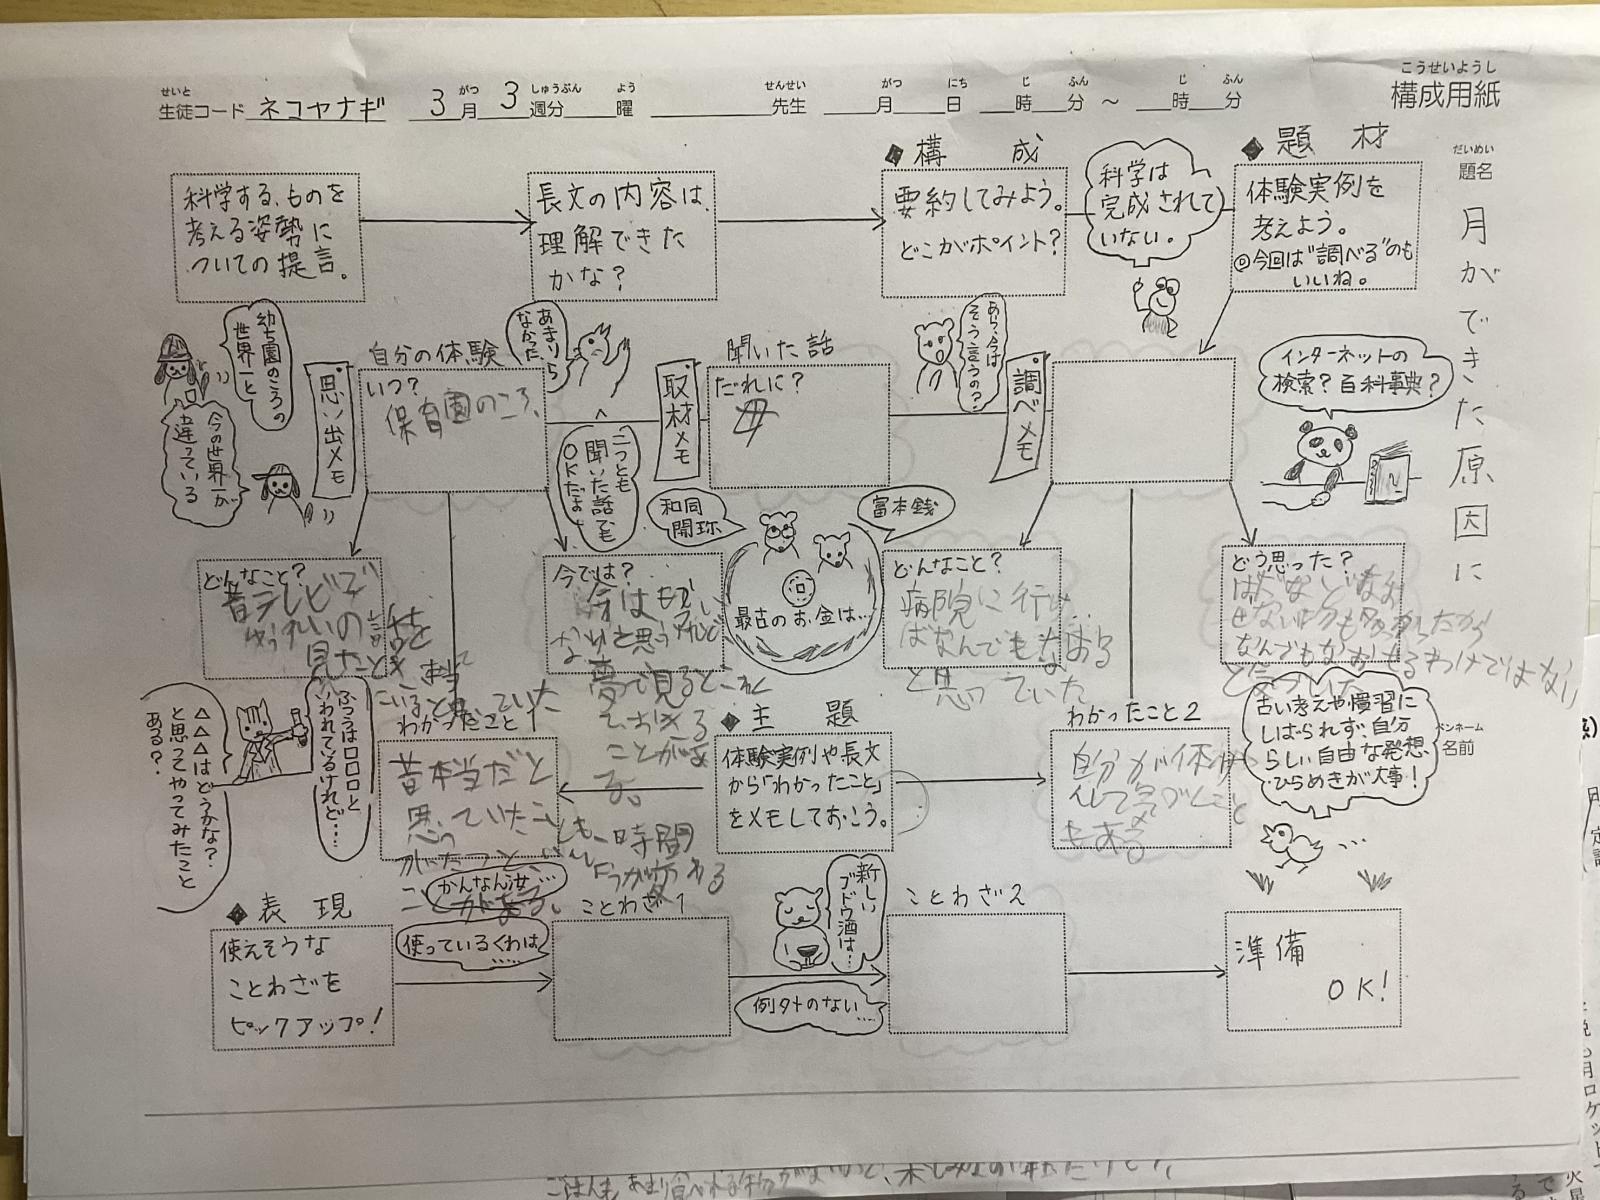 せいと がつ しゅうぶん よう せんせい がつ にち じ ふん じ ふん
生徒コード ネコヤナギ 3月 3週分 曜 先生 月 日 時 分 ~ 時 分
こうせいようし
構成用紙
だいめい
題名
月ができた原因に
科学する、ものを
考える姿勢に
ついての提言。
長文の内容は、
理解できた
かな?
◆構成
要約してみよう。
どこがポイント?
科学は
完成されて
いない。
◆題材
体験実例を
考えよう。
◎今回は“調べる”のも
いいね。
幼ち園のころの
世界一と
今の世界一が
違っている
思い出メモ
自分の体験
いつ?
保育園のころ、
あまりら
なかった、
二つとも
聞いた話でも
OKだよ
取材メモ
聞いた話
だれに?
母
あら、今は
そう言うの?
調べメモ
インターネットの
検索?百科事典?
どんなこと?
昔テレビで
ゆうれいの
見たとき
今では?
今は
ないと思うけれど
夢で見るとこわく
ておきる
ことがあ
る。
和同
開珎
富本銭
最古のお金は…
どんなこと?
病院に行け
ばなんでもなおる
と思っていた
どう思った?
なんでもなおせるわけではない
ふつうは□□□と
いわれているけれど…
△△△はどうかな?
と思ってやってみたこと
ある?
わかったこと1
昔本当だと
思っていたこ
◆主題
体験実例や長文
から「わかったこと」
をメモしておこう。
わかったこと2
自分が体け
んして気づくこと
もある
古い考えや慣習に
しばられず、自分
らしい自由な発想、
ひらめきが大事!
ペンネーム
名前
◆表現
使えそうな
ことわざを
ピックアップ!
かんなん汝…
使っているくわは……
ことわざ1
新しい
ブドウ酒は…
例外のない……
ことわざ2
準備
OK!